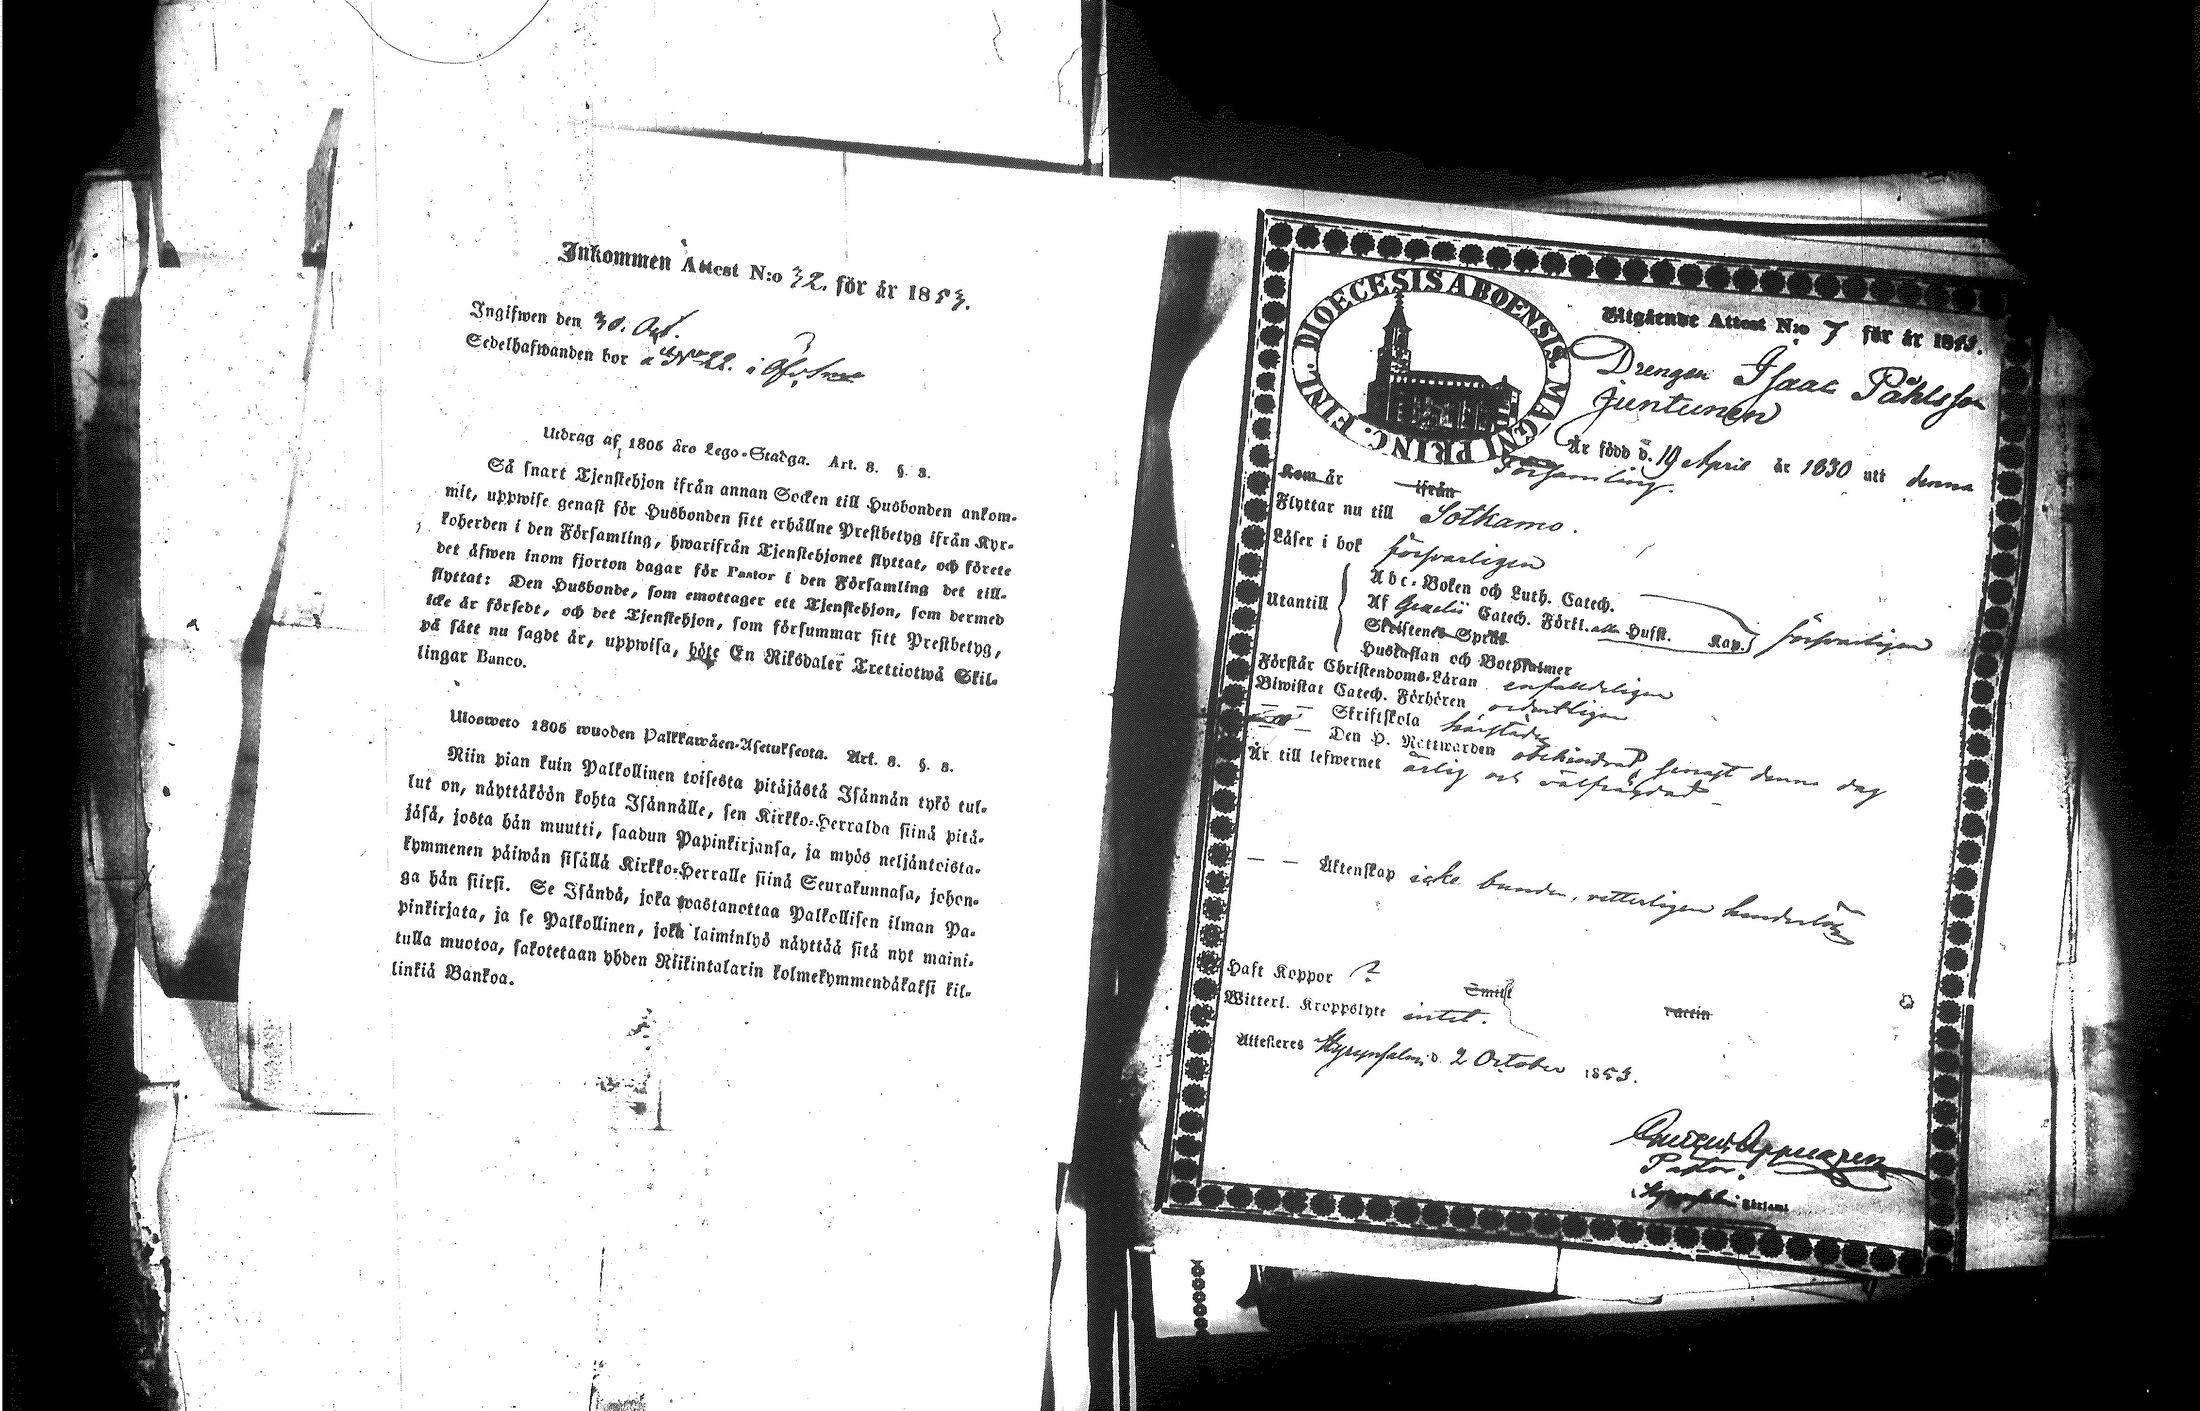 Inkommen Attest N:o 32. för år 1853.
Ingifwen den 30. Oct.
Sedelhafwanden bor å No 22. i
Utdrag af 1805 års Lego-Stadga. Art. 8. §. 3.
Så snart Tjenstehjon ifrån annan Socken till Husbonden ankom-
mit, uppwise genast för Husbonden sitt erhållne Prestbetyg ifrån Kyr-
koherden i den Församling, hwarifrån Tjenstehjonet flyttat, och förete
det åfwen inom fjorton dagar för Pastor i den Församling det till-
flyttat: Den Husbonde, som emottager ett Tjenstehjon, som dermed
icke är försedt, och det Tjenstehjon, som försummar sitt Prestbetyg,
på sätt nu sagdt är, uppwisa, böte En Riksdaler Trettiotwå Skil-
lingar Banco.
Ulosweto 1805 wuoden Palkkawäen-Asetuksesta. Art. 8. §. 3.
Niin pian kuin Palkollinen toisesta pitäjästä Isännän tykö tul-
lut on, näyttäköön kohta Isännälle, sen Kirkko-Herralda siinä pitä-
jäsä, josta hän muutti, saadun Papinkirjansa, ja myös neljäntoista-
kymmenen päiwän sisällä Kirkko-Herralle siinä Seurakunnasa, johon-
ga hän siirsi. Se Isändä, joka wastanottaa Palkollisen ilman Pa-
pinkirjata, ja se Palkollinen, joka laiminlyö näyttää sitä nyt maini-
tulla muotoa, sakotetaan yhden Riikintalarin kolmekymmendäkaksi kil-
linkiä Bankoa.
DIOECESIS ABOENSIS MAGNI PRINC. FINL.
Utgående Attest N:o 7 för år 1853.
Drengen Isaac Påhlsson
Juntunen
Är född d. 19 April år 1830 uti denna
Församling.
Kom år ifrån
Flyttar nu till Sotkamo.
Läser i bok försvarligen
Utantill Abc-Boken och Luth. Catech.
Af Catech. Förkl. Husst. Kap. försvarligen
Skriftenes Språk
Hustaflan och Botpsalmer
Förstår Christendoms-Läran enfaldeligen
Biwistat Catech. Förhören ordentligen
— Skriftskola
— Den H. Nattwarden obehindrad, senast denna dag
Är till lefwernet ärlig och välfrägdad —
— — Äktenskap icke bunden, vetterligen hinderlös
Haft Koppor ?
Witterl. Kroppslyte intet.
Attesteres Hyrynsalmi d. 2 October 1853.
Pastor.
Hyrynsalmi Församl.